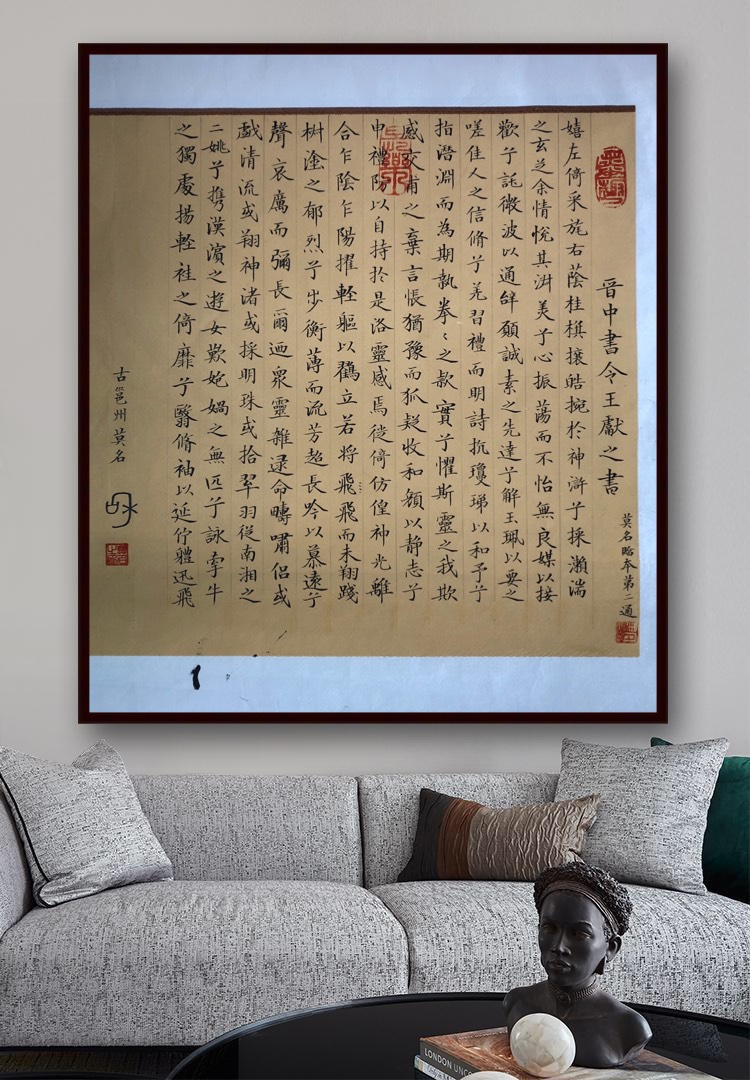 莫名臨本第二通
晉中書令王獻之書
嬉左倚采旄右蔭桂旗攘皓捥於神滸兮採瀨湍
之玄芝余情悅其淑美兮心振蕩而不怡無良媒以接
歡兮託微波以通辞願誠素之先達兮解玉珮以要之
嗟佳人之信脩兮羌習禮而明詩抗瓊珶以和予兮
指潛淵而為期執拳〻之款實兮懼斯靈之我欺
感交甫之棄言悵猶豫而狐疑收和顏以静志兮
申禮防以自持於是洛靈感焉徙倚仿偟神光離
合乍陰乍陽擢輕軀以鶴立若將飛飛而未翔踐
椒塗之郁烈兮步衡薄而流芳超長吟以慕遠兮
聲哀厲而彌長爾迺衆靈雜遝命疇嘯侶或
戲清流或翔神渚或採明珠或拾翠羽從南湘之
二姚兮攜漢濱之遊女歎匏媧之無匹兮詠牽牛
之獨處揚輕袿之倚靡兮翳脩袖以延佇體迅飛
古邕州莫名
LONDON